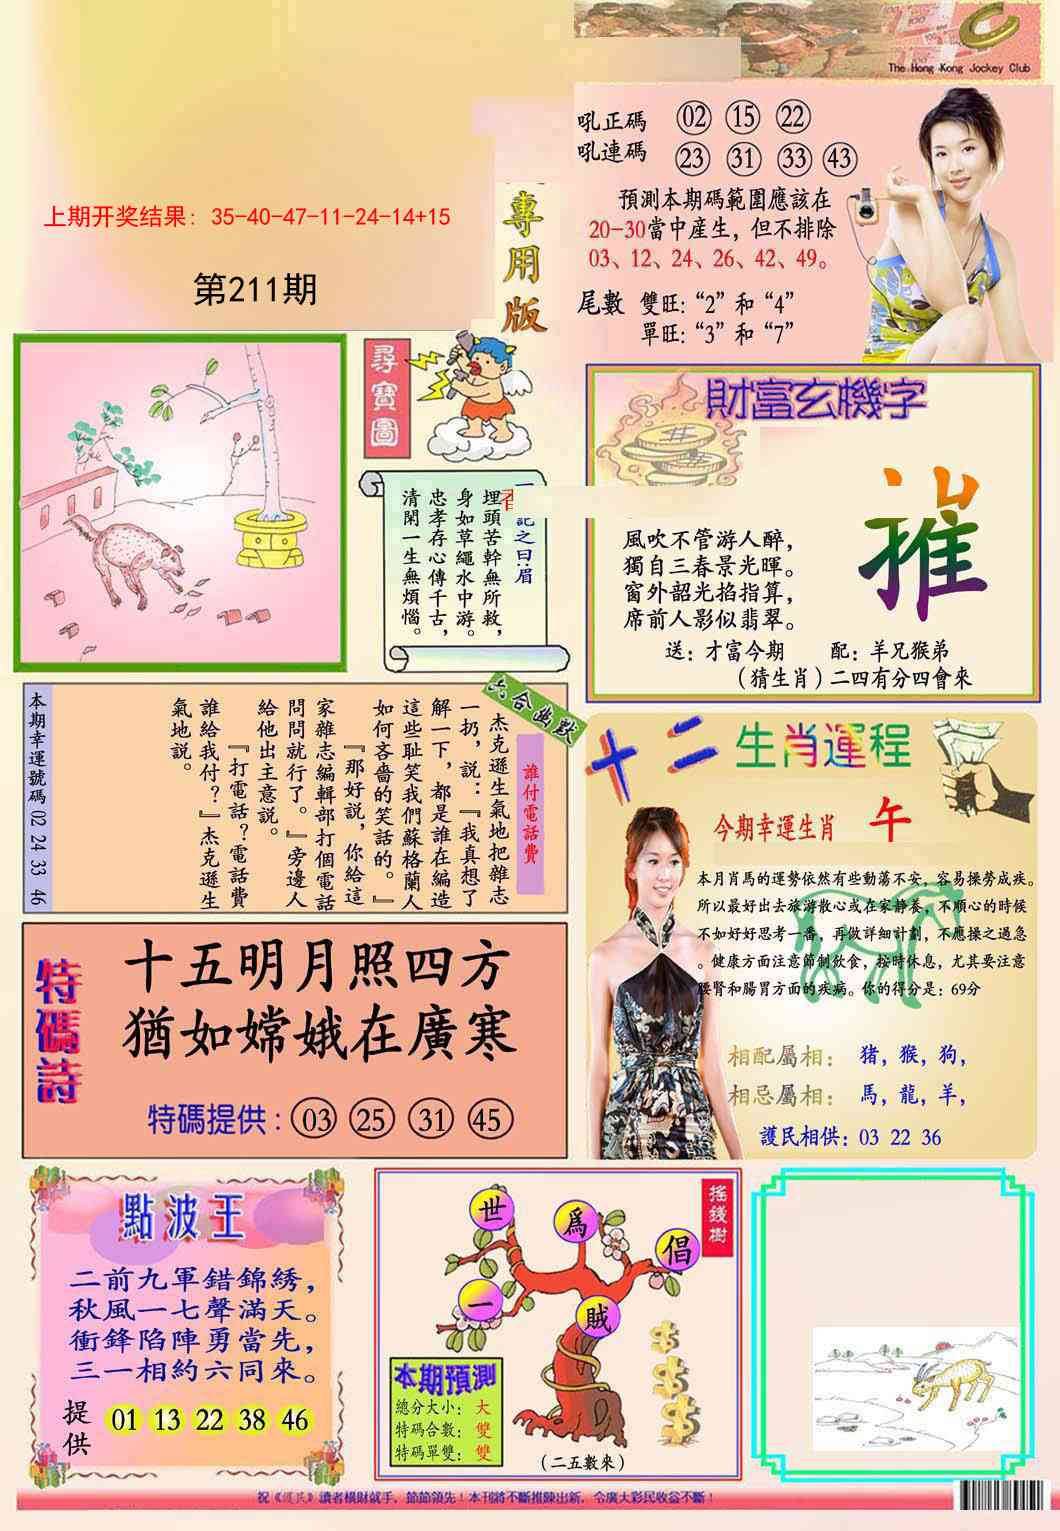 The Hong Kong Jockey Club
上期开奖结果: 35-40-47-11-24-14+15
第211期
專用版
吼正碼 02 15 22
吼連碼 23 31 33 43
預測本期碼範圍應該在
20-30當中產生，但不排除
03、12、24、26、42、49。
尾數 雙旺:“2”和“4”
單旺:“3”和“7”
尋寶圖
記之曰:眉
埋頭苦幹無所救，
身如草繩水中游。
忠孝存心傳千古，
清閑一生無煩惱。
財富玄機字
風吹不管游人醉，
獨自三春景光暉。
窗外韶光掐指算，
席前人影似翡翠。
送: 才富今期 配: 羊兄猴弟
（猜生肖）二四有分四會來
六合幽默
誰付電話費
杰克遜生氣地把雜志
一扔，説：『我真想了
解一下，都是誰在編造
這些耻笑我們蘇格蘭人
如何吝嗇的笑話的。』
『那好説，你給這
家雜志編輯部打個電話
問問就行了。』旁邊人
給他出主意説。
『打電話？電話費
誰給我付？』杰克遜生
氣地説。
本期幸運號碼 02 24 33 46
十二生肖運程
今期幸運生肖 午
本月肖馬的運勢依然有些動蕩不安，容易操勞成疾。
所以最好出去旅游散心或在家静養，不順心的時候
不如好好思考一番，再做詳細計劃，不應操之過急
。健康方面注意節制飲食，按時休息，尤其要注意
腰腎和腸胃方面的疾病。你的得分是: 69分
相配屬相: 猪，猴，狗，
相忌屬相: 馬，龍，羊，
護民相供: 03 22 36
特碼詩
十五明月照四方
猶如嫦娥在廣寒
特碼提供: 03 25 31 45
點波王
二前九軍錯錦綉，
秋風一七聲滿天。
衝鋒陷陣勇當先，
三一相約六同來。
提供 01 13 22 38 46
搖錢樹
世
為
倡
一
賊
本期預測
總分大小: 大
特碼合數: 雙
特碼單雙: 雙
（二五數來）
祝《護民》讀者橫財就手，節節領先！本刊將不斷推陳出新，令廣大彩民收益不斷！